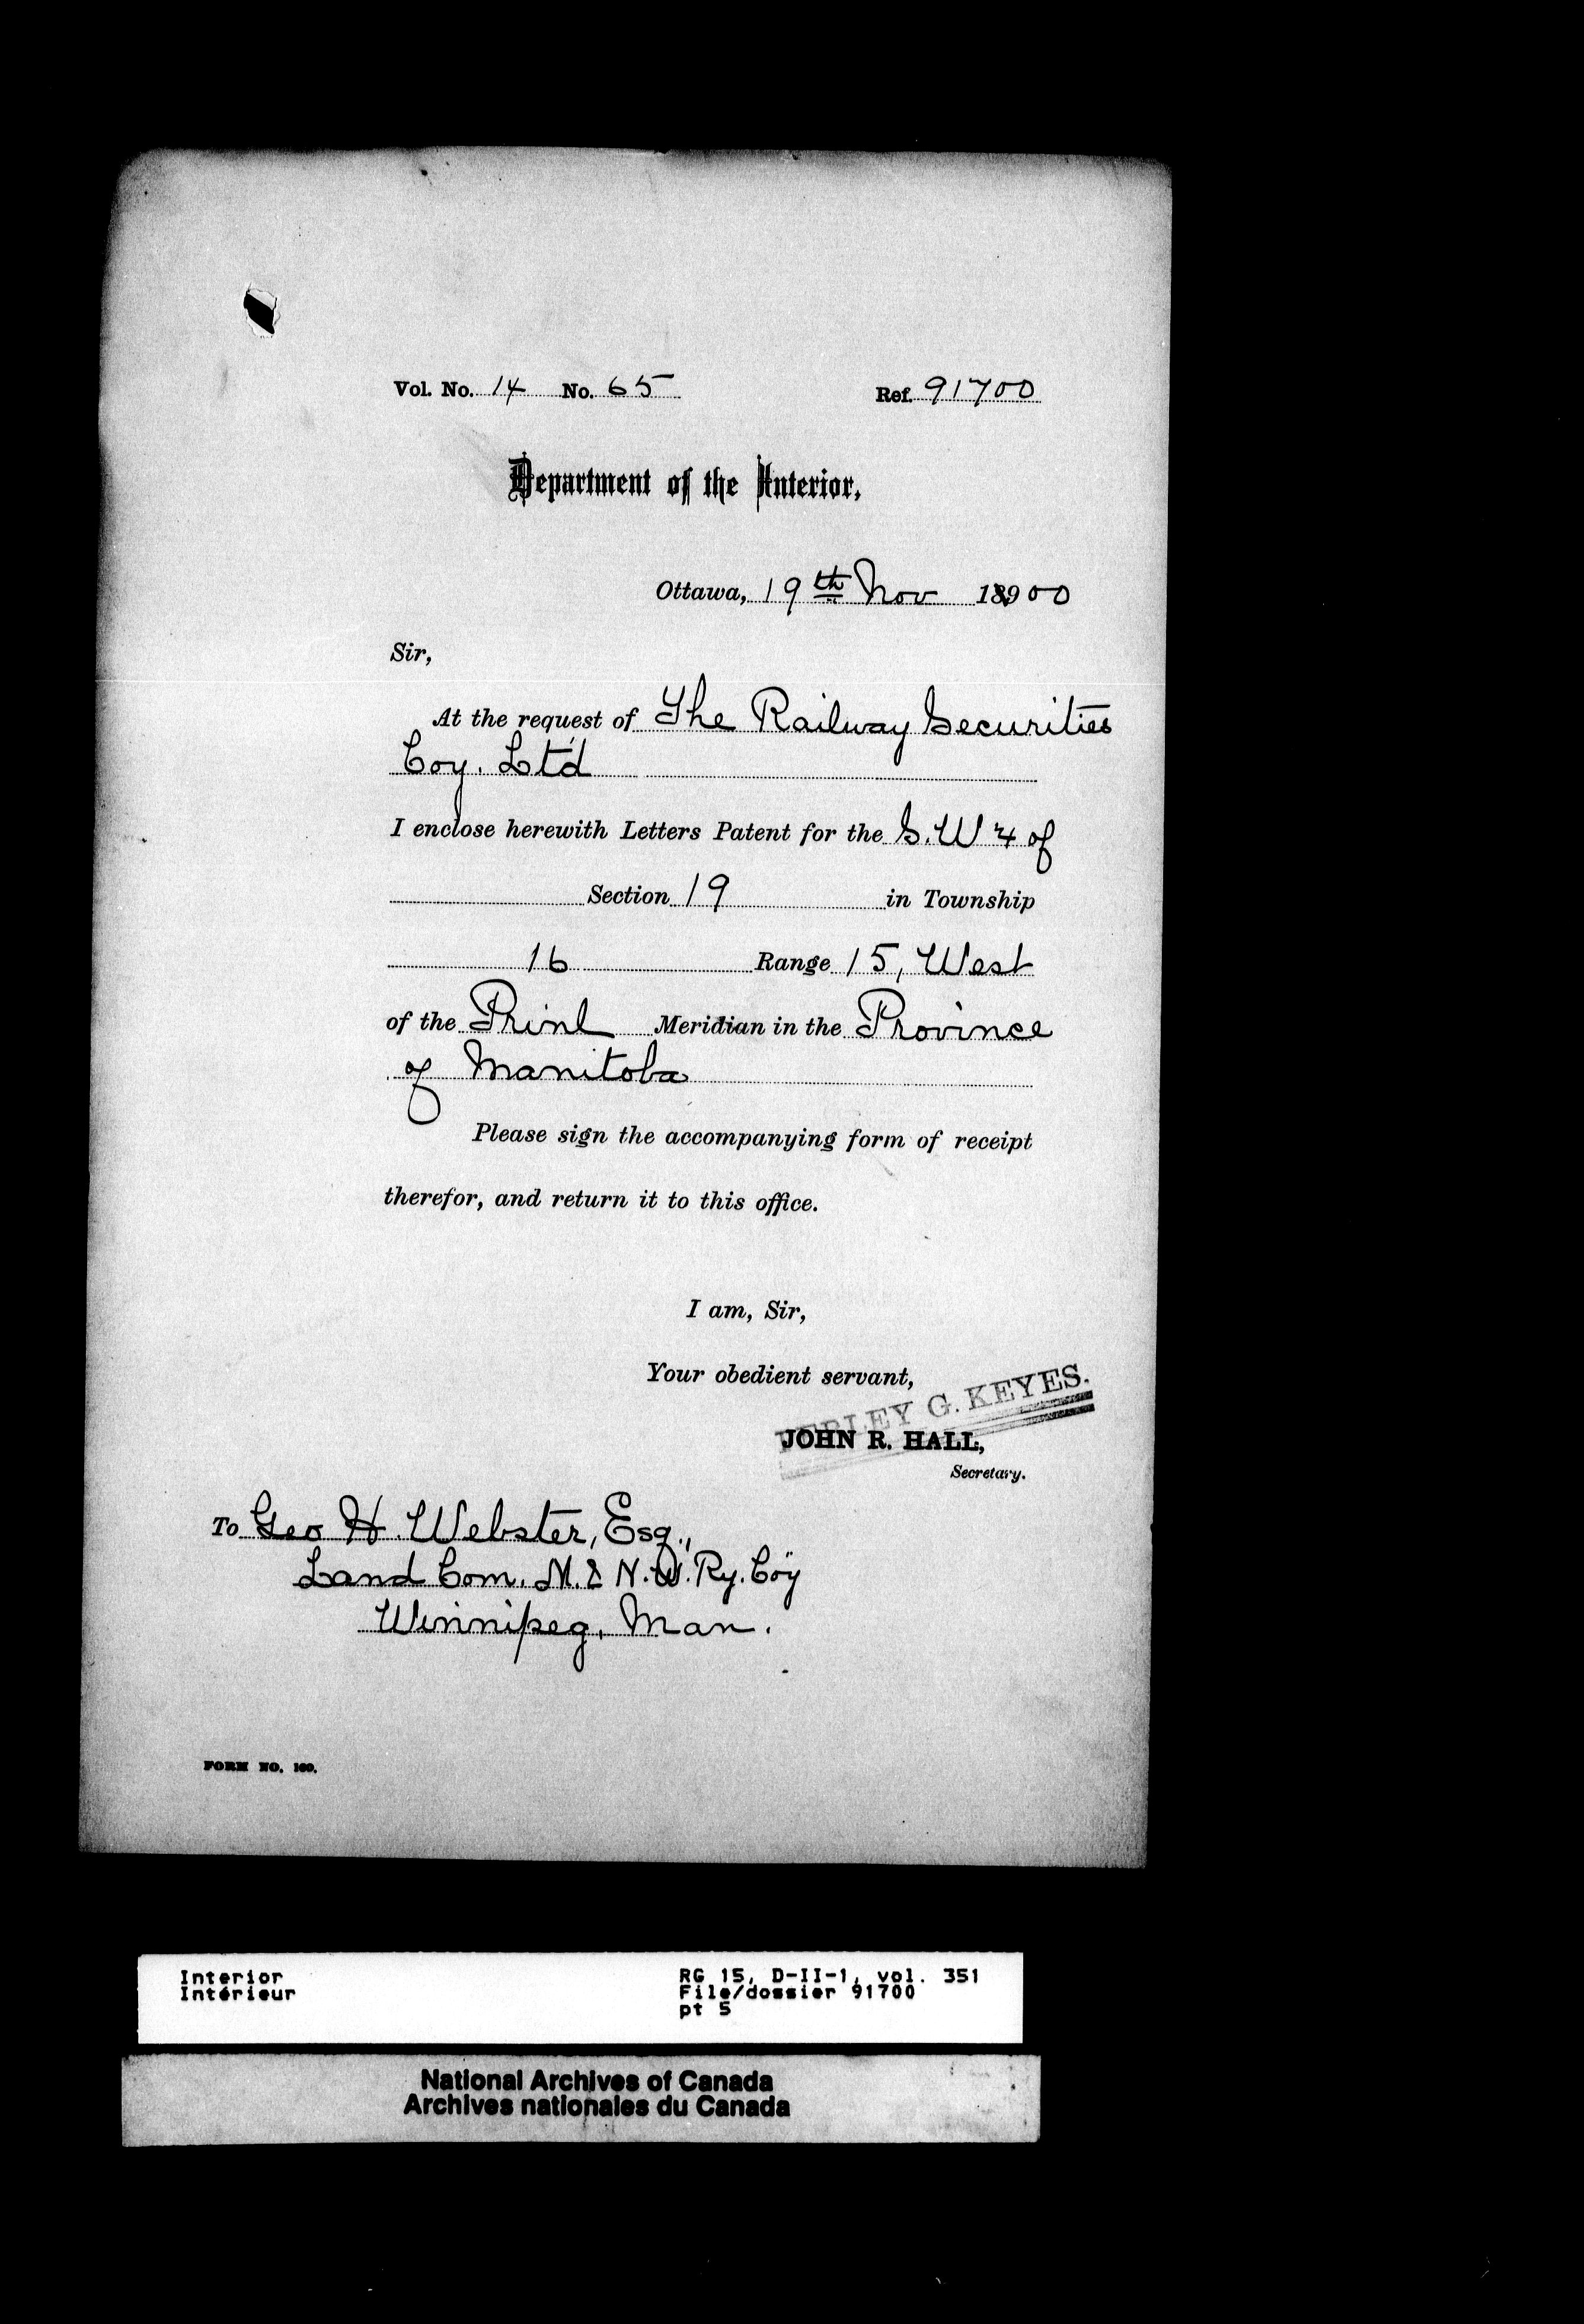 Vol. No. 14 No. 65 Ref. 91700
Department of the Interior,
Ottawa, 19th Nov 18900
Sir,
At the request of The Railway Securities
Coy. Ltd
I enclose herewith Letters Patent for the S.W 4 of
Section 19 in Township
16 Range 15, West
of the Prinl Meridian in the Province
of Manitoba
Please sign the accompanying form of receipt
therefor, and return it to this office.
I am, Sir,
Your obedient servant,
G. KEYES.
JOHN R. HALL,
Secretary.
To Geo H. Webster, Esq.,
Land Com. M. & N.W. Ry. Coy
Winnipeg, Man.
FORM NO. 160.
Interior
Intérieur
RG 15, D-II-1, vol. 351
File/dossier 91700
pt 5
National Archives of Canada
Archives nationales du Canada